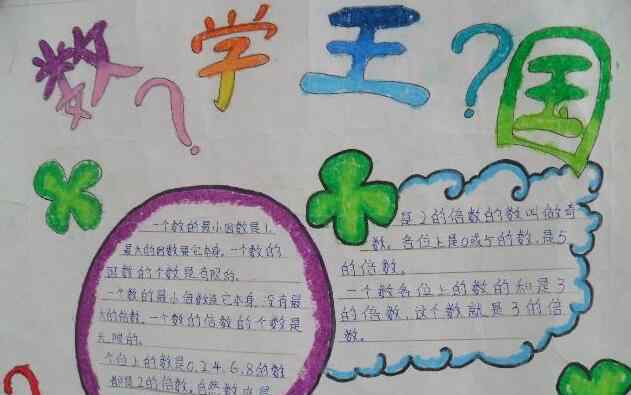 数学王国
??
一个数的最小因数是1,
最大的因数是它本身。一个数的
因数的个数是有限的。
一个数的最小倍数是它本身,没有最
大的倍数。一个数的倍数的个数是
无限的。
个位上的数是0,2,4,6,8的数
都是2的倍数。自然数中是
是2的倍数的数叫做奇
数。各位上是0或5的数,是5
的倍数。
一个数各位上的数的和是3
的倍数,这个数就是3的倍
数。